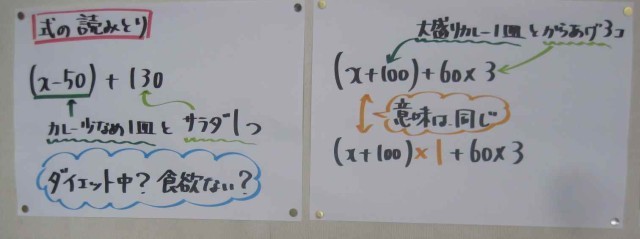 式の読みとり
(x-50)+130
カレー少なめ1皿とサラダ1つ
ダイエット中?食欲ない?
大盛りカレー1皿とからあげ3コ
(x+100)+60×3
意味は同じ
(x+100)×1+60×3